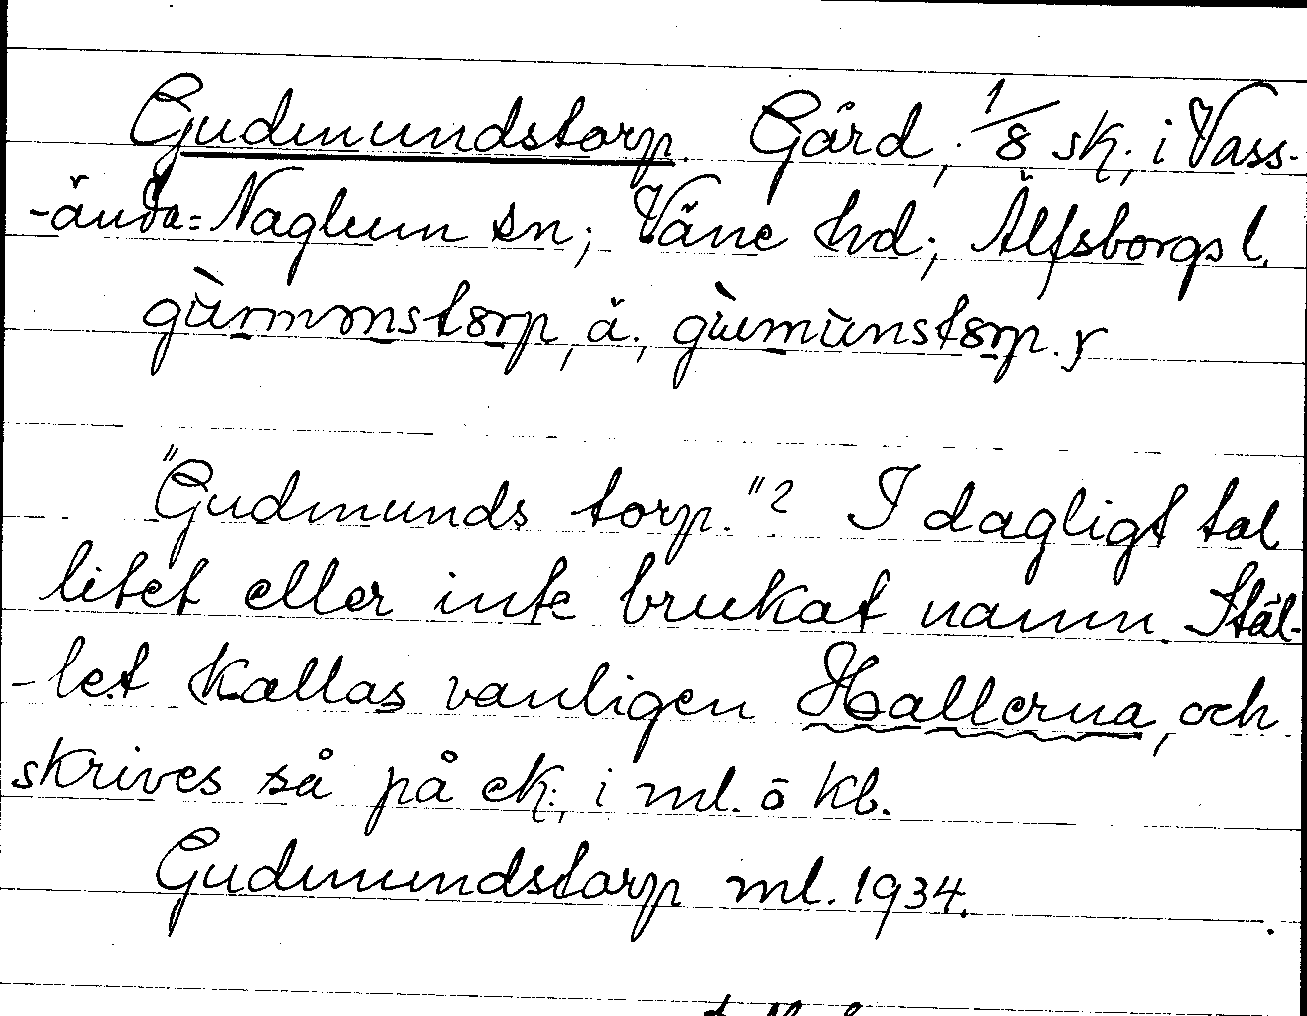 Gudmundstorp. Gård, 1/8 sk; i Väss-
-ända=Naglum sn; Väne hd; Älfsborgs l.
gùmmnstorp, ä., gùmunstorp. γ
"Gudmunds torp."? I dagligt tal
litet eller inte brukat namn. Stäl-
-let kallas vanligen Hallerna, och
skrives så på ek; i ml. o kb.
Gudmundstorp ml. 1934.